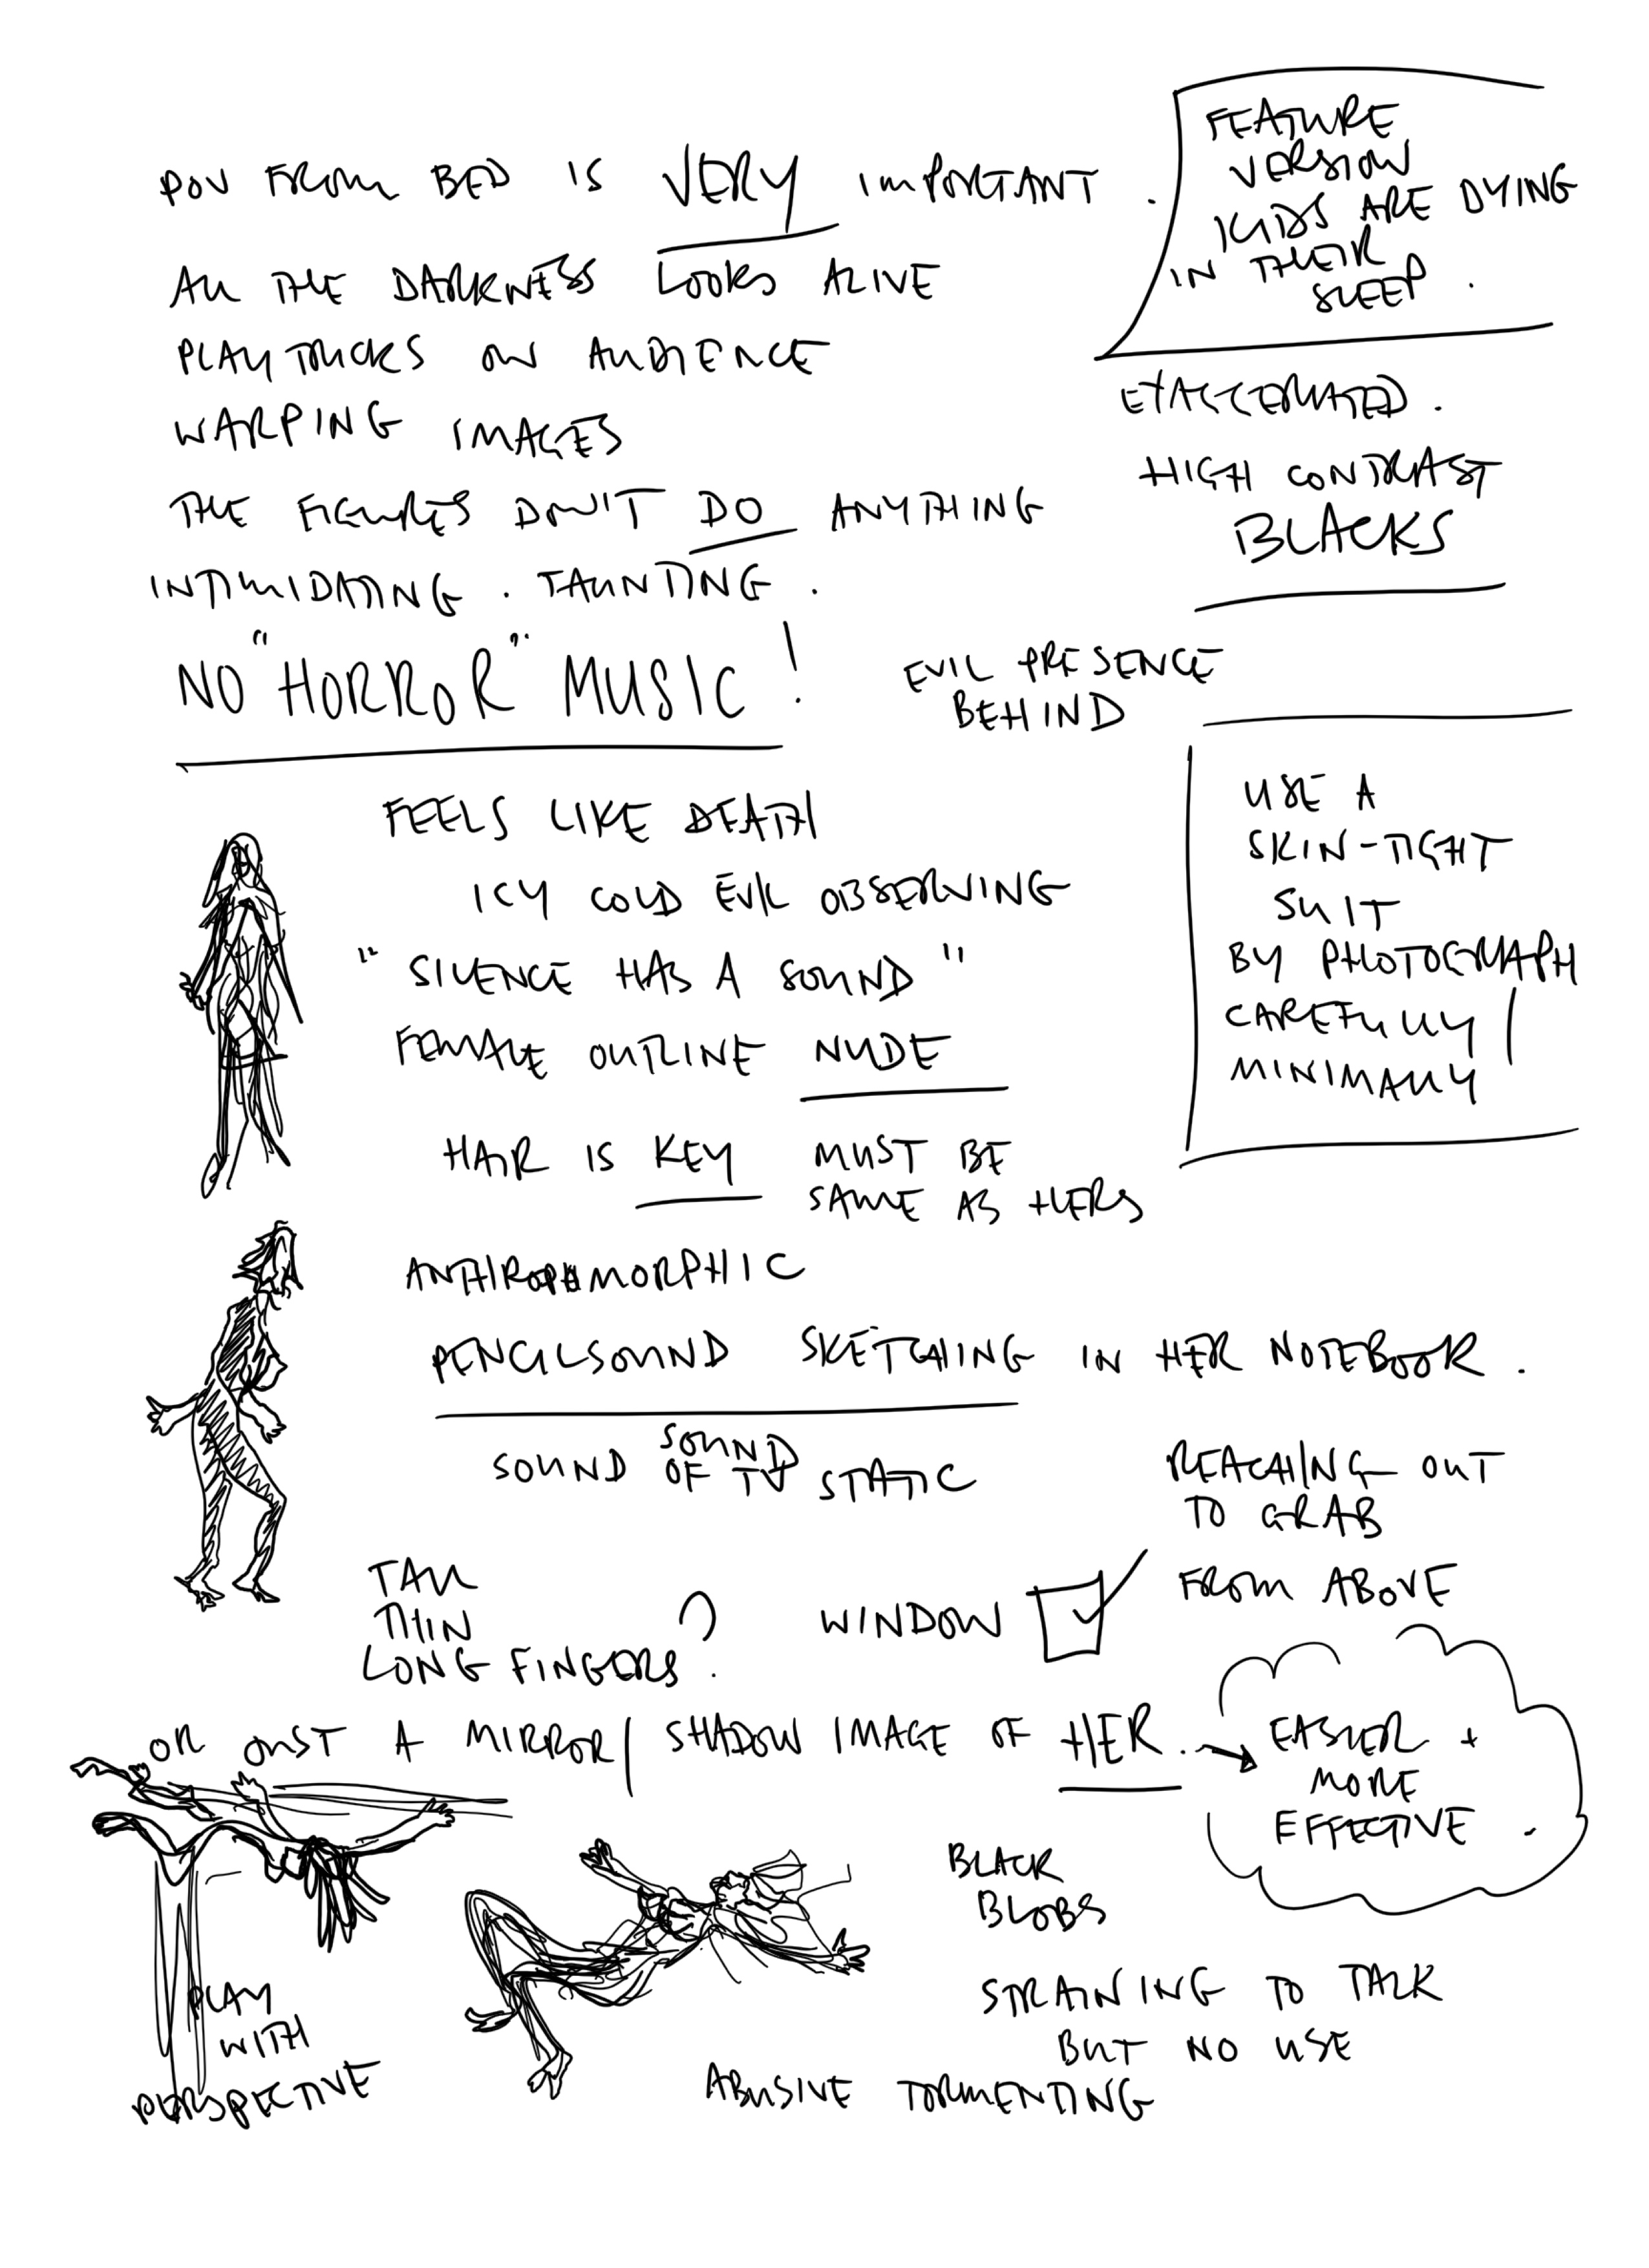 POV FROM BED IS VERY IMPORTANT.
ALL THE DARKNESS LOOKS ALIVE
PLAY TRICKS ON AUDIENCE
WARPING IMAGES
THE FIGURES DON'T DO ANYTHING
INTIMIDATING. TAUNTING.
NO "HORROR" MUSIC!
FEATURE
VERSION
KIDS ARE DYING
IN THEIR
SLEEP.
EXAGGERATED.
HIGH CONTRAST
BLACKS
EVIL PRESENCE
BEHIND
USE A
SKIN-TIGHT
SUIT
BY PHOTOGRAPH
CAREFULLY/
MINIMALLY
FEELS LIKE DEATH
ICY COLD EVIL OBSERVING
"SILENCE HAS A SOUND"
FEMALE OUTLINE NUDE
HAIR IS KEY MUST BE
SAME AS HERS
ANTHROPOMORPHIC
PENCILSOUND SKETCHING IN HER NOTEBOOK.
SOUND
SOUND OF TV STATIC
REACHING OUT
TO GRAB
FROM ABOVE
TALL
THIN
LONG FINGERS?
WINDOW
OR JUST A MIRROR/SHADOW IMAGE OF HER.
EASIER +
MORE
EFFECTIVE.
BLACK
BLOBS
STRAINING TO TALK
BUT NO USE
PLAY
WITH
PERSPECTIVE
ABUSIVE TORMENTING